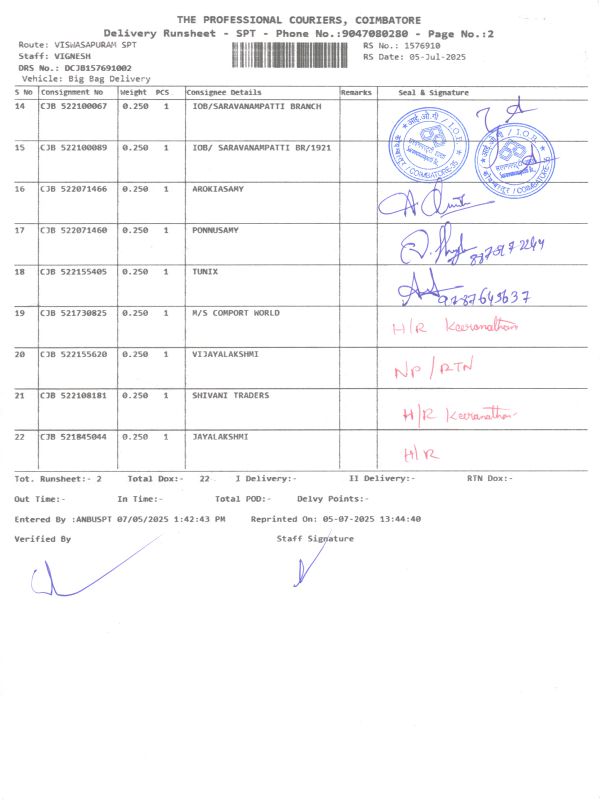 THE PROFESSIONAL COURIERS, COIMBATORE
Delivery Runsheet - SPT - Phone No.:9047080280 - Page No.:2
Route: VISWASAPURAM SPT RS No.: 1576910
Staff: VIGNESH RS Date: 05-Jul-2025
DRS No.: DCJB157691002
Vehicle: Big Bag Delivery
S No Consignment No Weight PCS Consignee Details Remarks Seal & Signature
14 CJB 522100067 0.250 1 IOB/SARAVANAMPATTI BRANCH
15 CJB 522100089 0.250 1 IOB/ SARAVANAMPATTI BR/1921
आई.ओ.बी / I.O.B.
कोयम्बत्तूर / COIMBATORE-35
आई.ओ.बी / I.O.B.
कोयम्बत्तूर / COIMBATORE-35
16 CJB 522071466 0.250 1 AROKIASAMY
17 CJB 522071460 0.250 1 PONNUSAMY
18 CJB 522155405 0.250 1 TUNIX 9787643637
19 CJB 521730825 0.250 1 M/S COMPORT WORLD H/R Keeranatham
20 CJB 522155620 0.250 1 VIJAYALAKSHMI NP/RTN
21 CJB 522108181 0.250 1 SHIVANI TRADERS H/R Keeranatham
22 CJB 521845044 0.250 1 JAYALAKSHMI H/R
Tot. Runsheet:- 2 Total Dox:- 22 I Delivery:- II Delivery:- RTN Dox:-
Out Time:- In Time:- Total POD:- Delvy Points:-
Entered By :ANBUSPT 07/05/2025 1:42:43 PM Reprinted On: 05-07-2025 13:44:40
Verified By Staff Signature